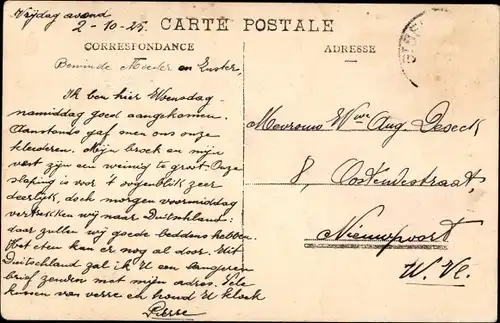 Vrijdag avond
2-10-25.
CARTE POSTALE
CORRESPONDANCE
ADRESSE
Beminde Moeder en Zuster,
Ik ben hier Woensdag-
namiddag goed aangekomen.
Aanstonds gaf men ons onze
kleederen. Mijn broek en mijn
vest zijn een weinig te groot. Onze
slaping is voor 't oogenblik zeer
deerlijk, doch morgen voormiddag
vertrekken wij naar Duitschland:
daar zullen wij goede bedden hebben.
Het eten kan er nog al door. Uit
Duitschland zal ik U een langeren
brief zenden met mijn adres. Vele
kussen van verre en houd U kloek
Pierre
Mevrouw Wwe Aug. Deseck
8, Oostendestraat,
Nieuwpoort
W. Vl.